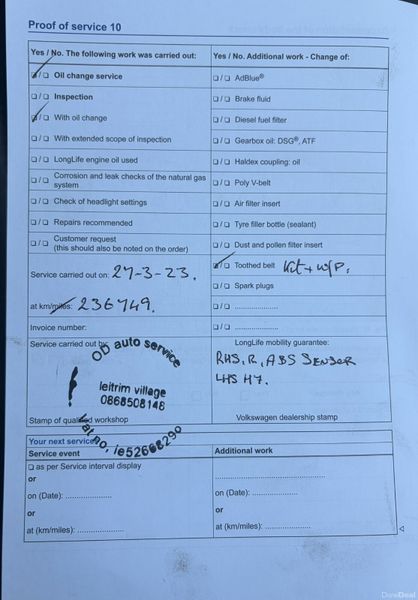 Proof of service 10
Yes / No. The following work was carried out:
Yes / No. Additional work - Change of:
☑/☐ Oil change service
☐/☐ AdBlue®
☐/☐ Inspection
☐/☐ Brake fluid
☑/☐ With oil change
☐/☐ Diesel fuel filter
☐/☐ With extended scope of inspection
☐/☐ Gearbox oil: DSG®, ATF
☐/☐ LongLife engine oil used
☐/☐ Haldex coupling: oil
☐/☐ Corrosion and leak checks of the natural gas
system
☐/☐ Poly V-belt
☐/☐ Check of headlight settings
☐/☐ Air filter insert
☐/☐ Repairs recommended
☐/☐ Tyre filler bottle (sealant)
☐/☐ Customer request
(this should also be noted on the order)
☐/☐ Dust and pollen filter insert
Service carried out on: 27-3-23.
☑/☐ Toothed belt Kit + W/P.
☐/☐ Spark plugs
at km/miles: 236749.
☐/☐ ....................
Invoice number:
☐/☐ ....................
Service carried out by:
LongLife mobility guarantee:
OD auto service
leitrim village
0868508148
Vat no, ie52668290
RHS, R, ABS SENDER
LHS H7.
Stamp of qualified workshop
Volkswagen dealership stamp
Your next service:
Service event
Additional work
☐ as per Service interval display
or
on (Date): ....................
or
at (km/miles): ....................
....................
on (Date): ....................
or
at (km/miles): ....................
DoneDeal